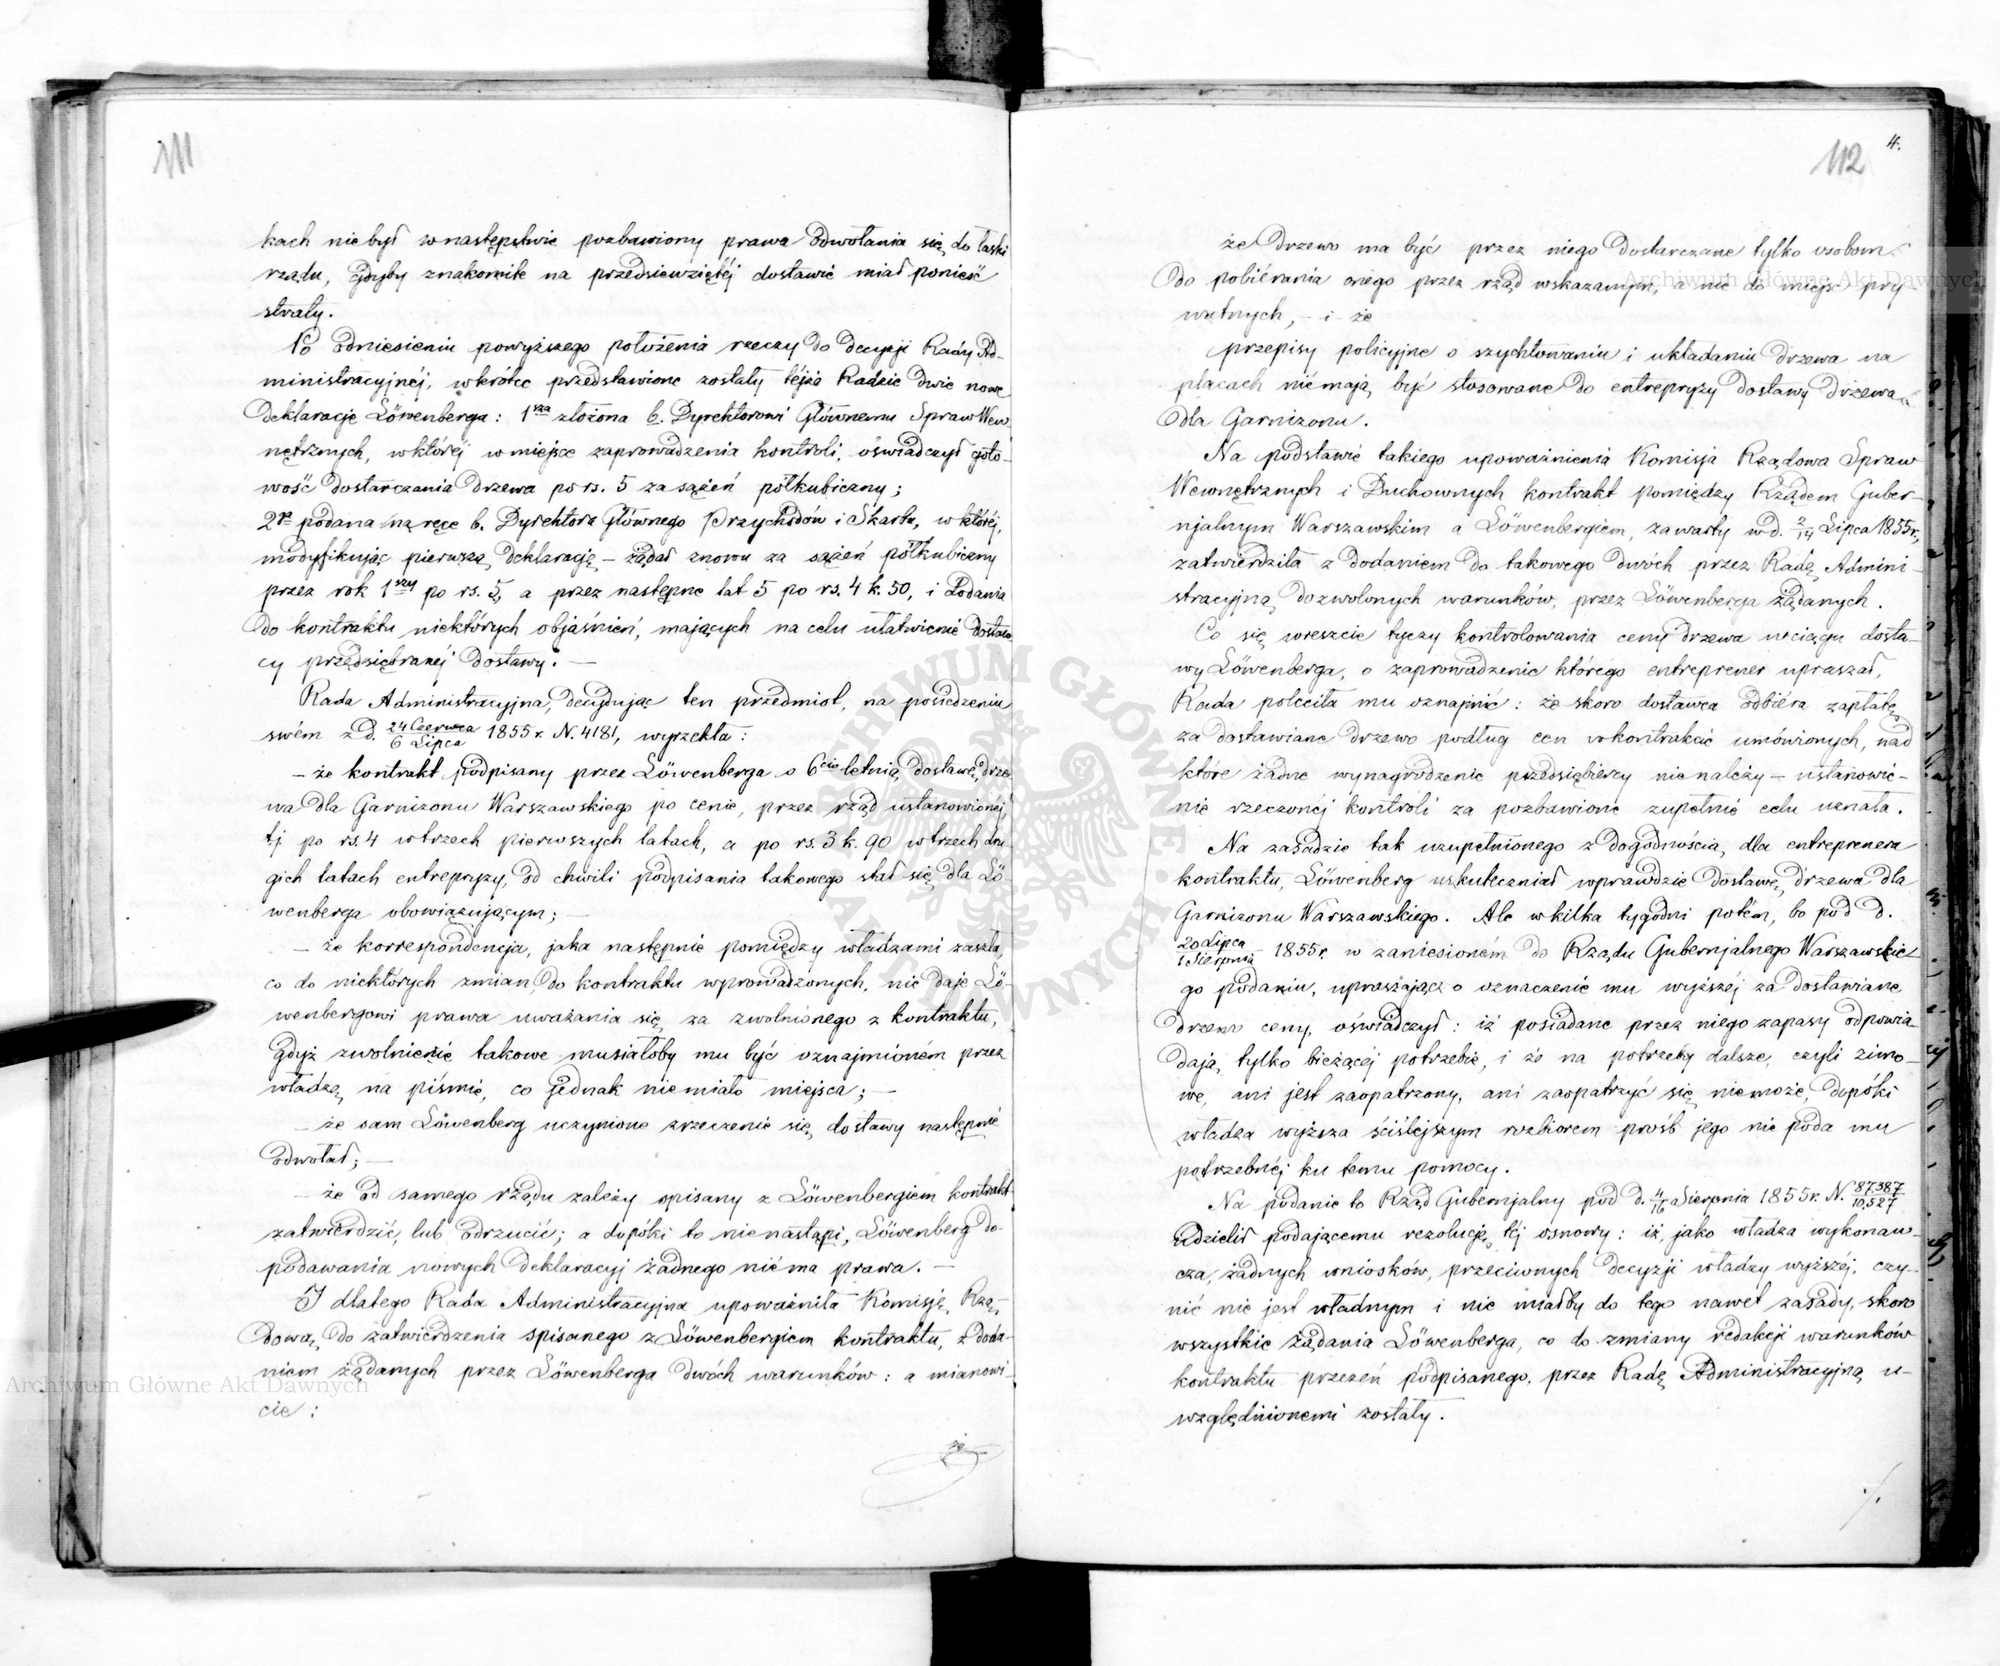 111
kach nie był w następstwie pozbawiony prawa odwołania się do łaski
rządu, gdyby znakomite na przedsiewziętéj dostawie miał ponieść
straty.
Po odniesieniu powyższego położenia rzeczy do decyzji Rady Ad-
ministracyjnéj, wkrótce przedstawione zostały téjże Radzie dwie nowe
deklaracje Löwenberga: 1sza złożona b. Dyrektorowi Głównemu Spraw Wew-
nętrznych, w któréj w miejsce zaprowadzenia kontroli, oświadczył goto-
wość dostarczania drzewa po rs. 5 za sążeń półkubiczny;
2ga podana na ręce b. Dyrektora Głównego Przychodów i Skarbu, w któréj,
modyfikując pierwszą deklarację – żądał znowu za sążeń półkubiczny
przez rok 1szy po rs. 5, a przez następne lat 5 po rs. 4 k. 50, i dodania
do kontraktu niektórych objaśnień, mających na celu ułatwienie dostaw
cy przedsiębranéj dostawy. —
Rada Administracyjna, decydując ten przedmiot, na posiedzeniu
swém z d. 24 Czerwca/6 Lipca 1855 r. N. 4181, wyrzekła:
– że kontrakt podpisany przez Löwenberga o 6cio letnią dostawę drze-
wa dla Garnizonu Warszawskiego po cenie, przez rząd ustanowionéj,
tj po rs. 4 w trzech pierwszych latach, a po rs. 3 k. 90 w trzech dru-
gich latach entrepryzy, od chwili podpisania takowego stał się dla Lö-
wenberga obowiązującym; —
– że korrespondencja, jaka następnie pomiędzy władzami zaszła,
co do niektórych zmian do kontraktu wprowadzonych, nie daje Lö-
wenbergowi prawa uważania się za zwolnionego z kontraktu,
gdyż zwolnienie takowe musiałoby mu być oznajmioném przez
władzę na piśmie, co jednak nie miało miejsca; —
– że sam Löwenberg uczynione zrzeczenie się dostawy następnie
odwołał; —
– że od samego rządu zależy spisany z Löwenbergiem kontrakt
zatwierdzić, lub odrzucić; a dopóki to nie nastąpi, Löwenberg do
podawania nowych deklaracyj żadnego nie ma prawa. —
I dlatego Rada Administracyjna upoważniła Komisję Rzą-
dową do zatwierdzenia spisanego z Löwenbergiem kontraktu, z doda-
niem żądanych przez Löwenberga dwóch warunków: a mianowi-
cie:
że
112
4.
że drzewo ma być przez niego dostarczane tylko osobom
do pobiérania onego przez rząd wskazanym, a nie do miejsc pry-
watnych, – i – że
przepisy policyjne o szychtowaniu i układaniu drzewa na
placach nie mają być stosowane do entrepryzy dostawy drzewa
dla Garnizonu.
Na podstawie takiego upoważnienia Komisja Rządowa Spraw
Wewnętrznych i Duchownych kontrakt pomiędzy Rządem Guber-
njalnym Warszawskim a Löwenbergiem, zawarty w d. 2/14 Lipca 1855 r.,
zatwierdziła z dodaniem do takowego dwóch przez Radę Admini-
stracyjną dozwolonych warunków, przez Löwenberga żądanych.
Co się wreszcie tyczy kontrolowania ceny drzewa w ciągu dosta-
wy Löwenberga, o zaprowadzenie którego entreprener upraszał,
Rada poleciła mu oznajmić: że skoro dostawca odbiéra zapłatę
za dostawiane drzewo podług cen w kontrakcie umówionych, nad
które żadne wynagrodzenie przedsiębiercy nie należy – ustanowie-
nie rzeczonéj kontroli za pozbawione zupełnie celu uznała.
Na zasadzie tak uzupełnionego z dogodnością dla entreprenera
kontraktu, Löwenberg uskuteczniał wprawdzie dostawę drzewa dla
Garnizonu Warszawskiego. Ale w kilka tygodni potém, bo pod d.
20 Lipca/1 Sierpnia 1855 r. w zaniesioném do Rządu Gubernjalnego Warszawskie-
go podaniu, upraszając o oznaczenie mu wyższéj za dostawiane
drzewo ceny, oświadczył: iż posiadane przez niego zapasy odpowia-
dają tylko bieżącéj potrzebie, i że na potrzeby dalsze, czyli zimo-
we, ani jest zaopatrzony, ani zaopatrzyć się nie może, dopóki
władza wyższa ściślejszym rozbiorem prośb jego nie poda mu
potrzebnéj ku temu pomocy.
Na podanie to Rząd Gubernjalny pod d. 4/16 Sierpnia 1855 r. N. 87.387/10.527
udzielił podającemu rezolucję téj osnowy: iż, jako władza wykonaw-
cza, żadnych wniosków, przeciwnych decyzji władzy wyższéj, czy-
nić nie jest władnym i nie miałby do tego nawet zasady, skoro
wszystkie żądania Löwenberga, co do zmiany redakcji warunków
kontraktu przezeń podpisanego, przez Radę Administracyjną u-
względnionemi zostały.
./.
Archiwum Główne Akt Dawnych
Archiwum Główne Akt Dawnych
ARCHIWUM GŁÓWNE AKT DAWNYCH